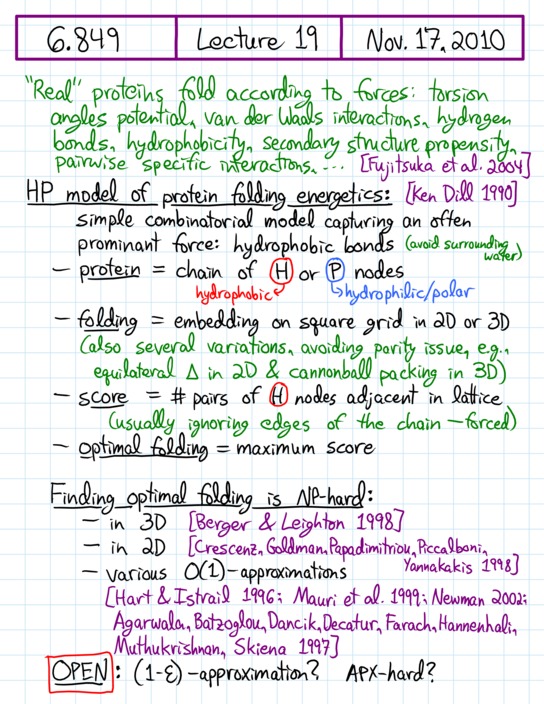 6.849 Lecture 19 Nov. 17, 2010
"Real" proteins fold according to forces: torsion
angles potential, van der Waals interactions, hydrogen
bonds, hydrophobicity, secondary structure propensity,
pairwise specific interactions, ... [Fujitsuka et al. 2004]
HP model of protein folding energetics: [Ken Dill 1990]
simple combinatorial model capturing an often
prominant force: hydrophobic bonds (avoid surrounding
water)
– protein = chain of H or P nodes
hydrophobic hydrophilic/polar
– folding = embedding on square grid in 2D or 3D
(also several variations, avoiding parity issue, e.g.,
equilateral Δ in 2D & cannonball packing in 3D)
– score = # pairs of H nodes adjacent in lattice
(usually ignoring edges of the chain – forced)
– optimal folding = maximum score
Finding optimal folding is NP-hard:
– in 3D [Berger & Leighton 1998]
– in 2D [Crescenz, Goldman, Papadimitriou, Piccalboni,
Yannakakis 1998]
– various O(1)-approximations
[Hart & Istrail 1996; Mauri et al. 1999; Newman 2002;
Agarwala, Batzoglou, Dancik, Decatur, Farach, Hannenhali,
Muthukrishnan, Skiena 1997]
OPEN: (1-ε)-approximation? APX-hard?